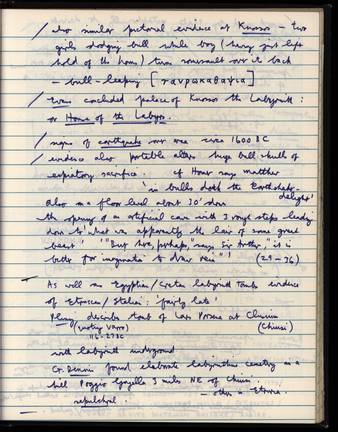 / also similar pictorial evidence at Knossos – two
girls dodging bull while boy (having just left
hold of the horns) turns somersault over its back
– bull-leaping [ταυροκαθαψια]
/ Evans concluded palace of Knossos the Labyrinth :
or House of the Labrys.
/ signs of earthquake over area circa 1600 BC
/ evidence also portable altars huge bull skulls of
expiatory sacrifice. cf Homer says
'in bulls doth the Earth-shaker
delight'
Also in a floor level about 30' down
the opening of an artificial cave with 3 rough steps leading
down to 'what was apparently the lair of some great
beast'! '"But here, perhaps," says Sir Arthur, "it is
better for imagination to draw rein"'! (29–36)
As well as Egyptian/Cretan labyrinth tombs evidence
of Etruscan/Italian : 'fairly late'
Pliny describes tomb of Lars Porsena at Clusium
(quoting Varro) (Chiusi)
116–27BC
with labyrinth underground
Cr. Dennis found elaborate labyrinthine cemetery in a
hill Poggio Gajella 3 miles NE of Chiusi.
– others in Etruria.
sepulchral.